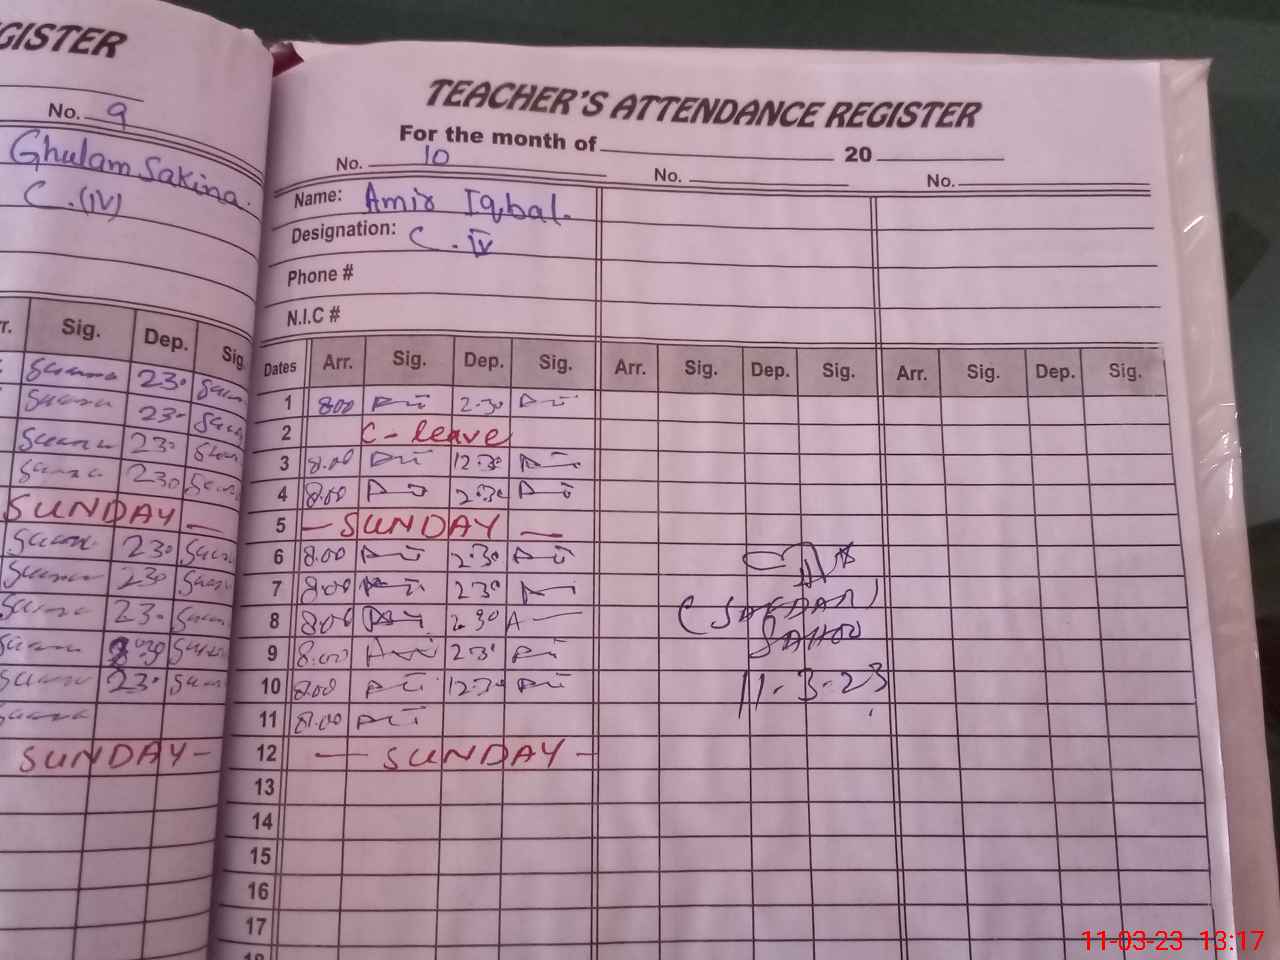 GISTER
No. 9
Ghulam Sakina.
C.(IV)
r. Sig. Dep. Sig.
23·
23·
23·
230
SUNDAY —
23·
230
23·
230
23·
SUNDAY -
TEACHER'S ATTENDANCE REGISTER
For the month of 20
No. 10 No. No.
Name: Amir Iqbal.
Designation: C. IV
Phone #
N.I.C #
Dates Arr. Sig. Dep. Sig. Arr. Sig. Dep. Sig. Arr. Sig. Dep. Sig.
1 8.00 2.30
2 C-leave
3 8.00 12.30
4 8.00 2.30
5 — SUNDAY —
6 8.00 2.30
7 8.00 2.30
8 8.00 2.30
9 8.00 2.30
10 8.00 12.30
11 8.00
12 — SUNDAY -
13
14
15
16
17
18
11-3-23
11-03-23 13:17